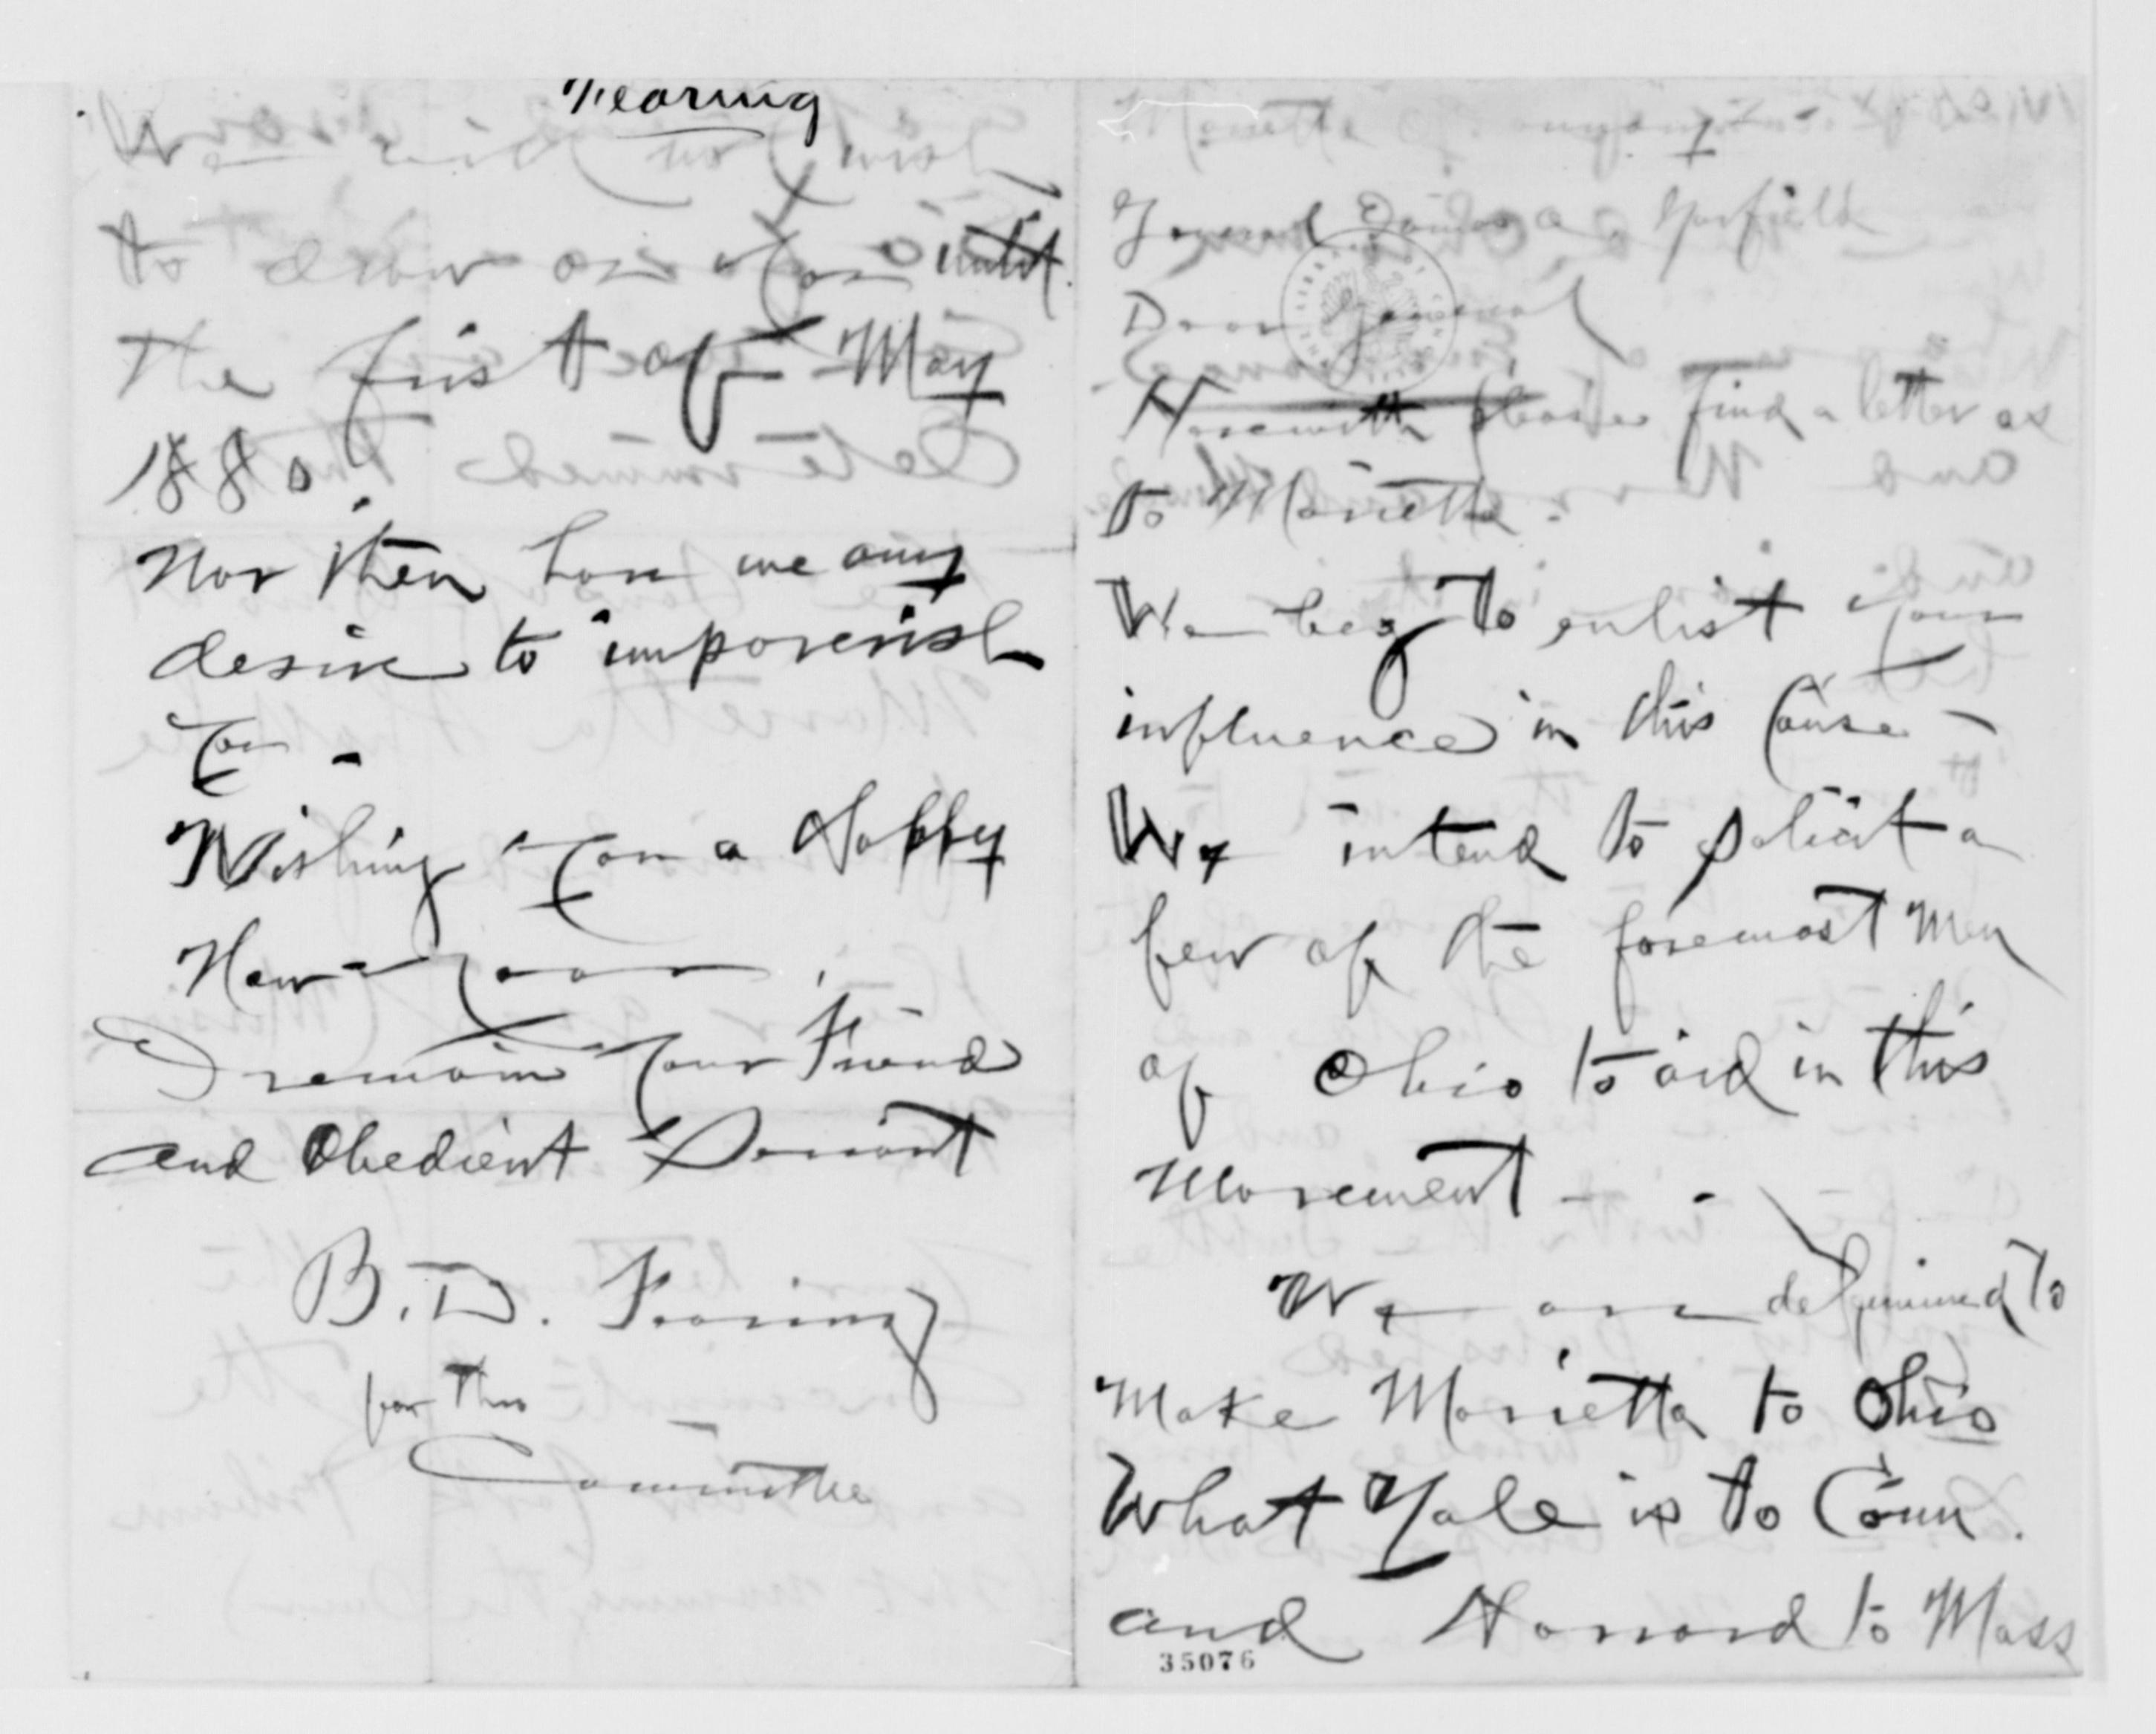 Marietta O.
General James A. Garfield
Dear General
Herewith please find a letter as
to Marietta.
We beg to enlist your
influence in this Cause -
We intend to solicit a
few of the foremost Men
of Ohio to aid in this
Movement - -
We are determined to
Make Marietta to Ohio
What Yale is to Conn.
and Harvard to Mass
35076
Fearing
We will not wish
to draw on you until
the first of May
1880.
Nor then have we any
desire to impoverish
You -
Wishing You a Happy
New Year,
I remain your Friend
and Obedient Servant
B. D. Fearing
for the
Committee